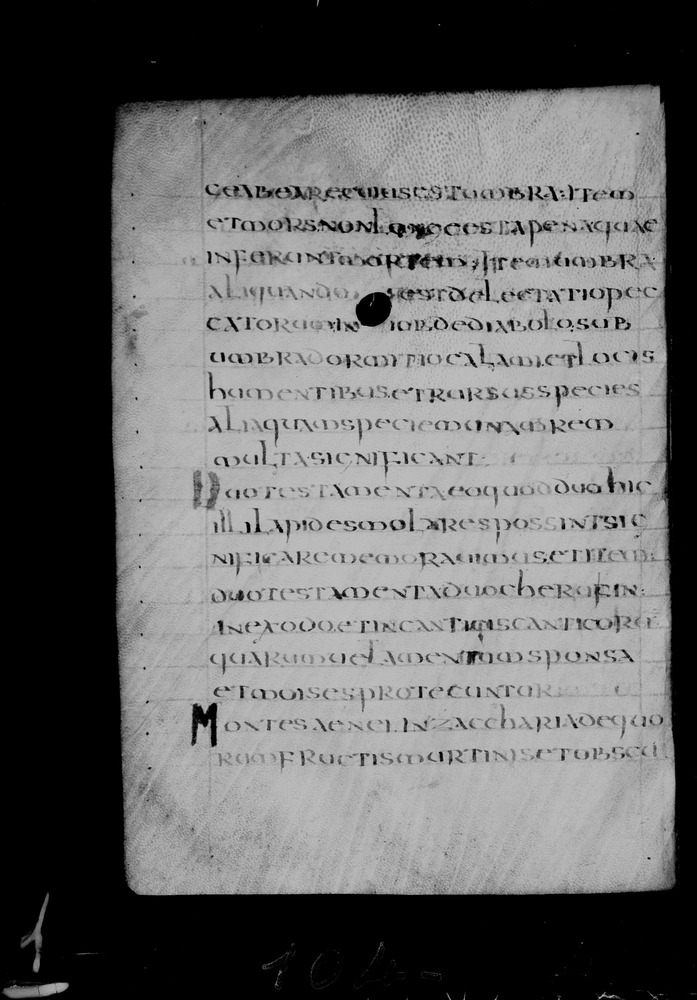 ETMORSNONLO
INFERUNTMORTEM ITEMUMBRA
ALIQUANDO DELECTATIOPEC
CATORUMIN IOBDEDIABOLOSUB
UMBRADORMITINCALAMIETLOCIS
HUMENTIBUSETRURSUSSPECIES
ALIAQUAMSPECIEMUNAMREM
MULTASIGNIFICANT
DUOTESTAMENTAEOQUODDUOHIC
ILLILAPIDESMOLARESPOSSINTSIG
NIFICAREMEMORAUIMUSETITEM
DUOTESTAMENTADUOCHERUFIN
INEXODOETINCANTICISCANTICORU
QUARUMUELAMENTUMSPONSA
ETMOISESPROTEGUNTUR
MONTESAENEIINZACCHARIADEQUO
RUMFRUCTISMURTINISETOBSCU